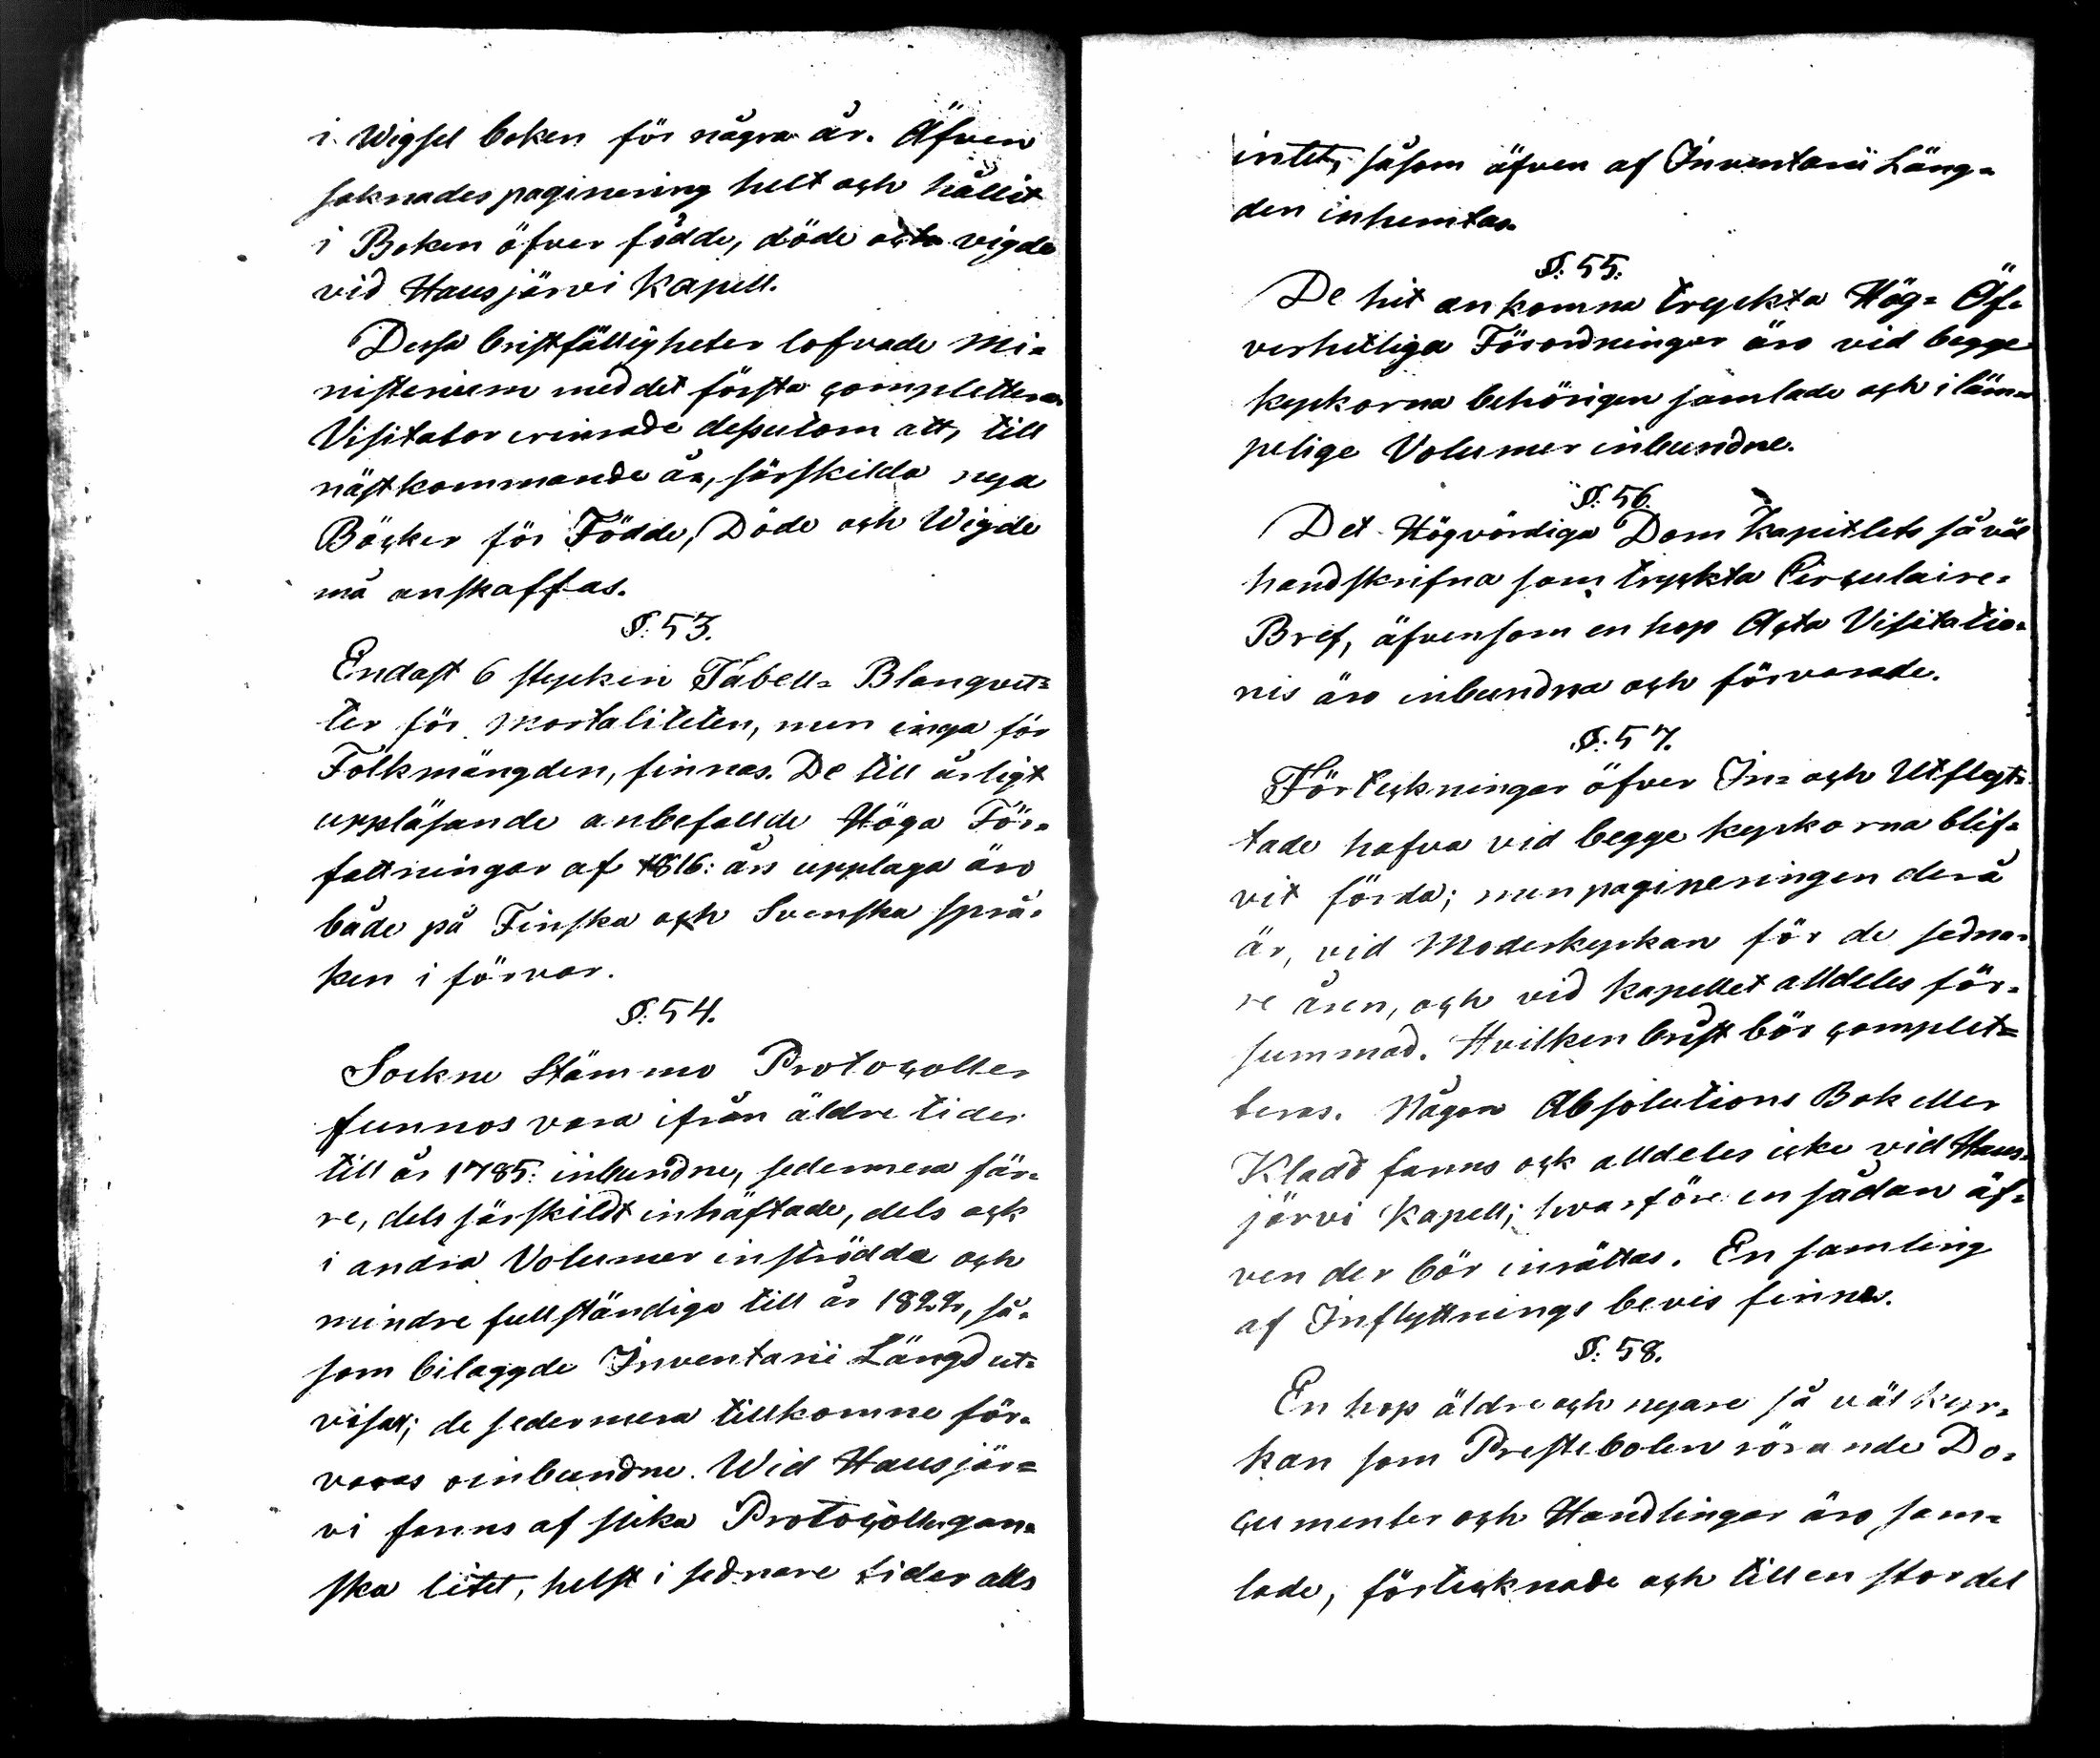 i Wigsel boken för några år. Äfven
saknades paginering helt och hållit
i Boken öfver födde, döde och vigde
vid Hausjärvi Kapell.
Dessa bristfälligheter lofvade Mi=
nisterium med det första complettera.
Visitator erinrade dessutom att, till
nästkommande år, särskilda nya
Böcker för Födde, Döde och Wigde
må anskaffas.
§: 53.
Endast 6 stycken Tabell= Blanqvet=
ter för Mortaliteten, men inga för
Folkmängden, finnas. De till årligt
uppläsande anbefallde Höga För=
fattningar af 1816: års upplaga äro
både på Finska och Svenska språ=
ken i förvar.
§: 54.
Sockne Stämmo Protocoller
funnos vara ifrån äldre tider
till år 1785: inbundne, sedermera fär=
re, dels särskildt inhäftade, dels ock
i andra Volumer inströdda och
mindre fullständiga till år 1822, så=
som bilaggde Inventarii Längd ut=
visar; de sedermera tillkomne för=
varas oinbundne. Wid Hausjär=
vi fanns af slika Protocoller gan=
ska litet, helst i sednare tider alls
intet, såsom äfven af Inventarii Läng=
den inhemtas.
§: 55:
De hit ankomna tryckta Hög= Öf=
verhetliga Förordningar äro vid begge
kyrkorna behörigen samlade och i läm=
pelige Volumer inbundne.
§: 56.
Det Högvördiga Dom Kapitlets så väl
handskrifna som tryckta Circulaire=
Bref, äfvensom en hop Acta Visitatio=
nis äro inbundna och förvarade.
§: 57.
Förteckningar öfver In= och Utflyt=
tade hafva vid begge kyrkorna blif=
vit förda; men pagineringen derå
är, vid Moderkyrkan för de sedna=
re åren, och vid kapellet alldeles för=
summad. Hvilken brist bör complet=
teras. Någon Absolutions Bok eller
Kladd fanns ock alldeles icke vid Haus=
järvi Kapell; hvarföre en sådan äf=
ven der bör inrättas. En samling
af Inflyttnings bevis finnes.
§: 58.
En hop äldre och nyare så väl kyr=
kan som Prestebolen rörande Do=
cumenter och Handlingar äro sam=
lade, förtecknade och till en stor del